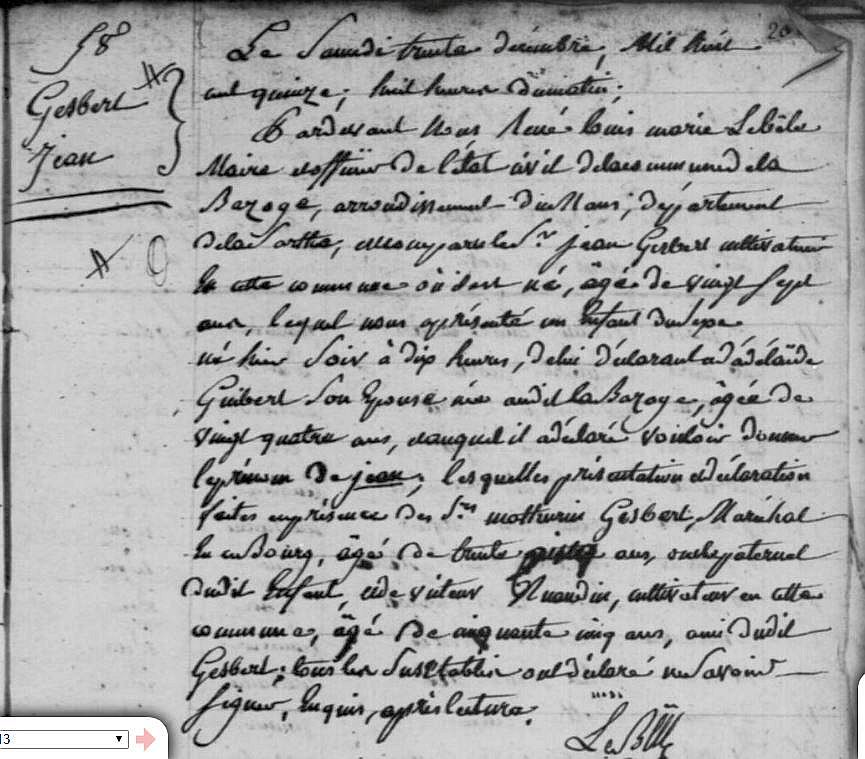 58
Gesbert
jean
20
Le Samedi trente décembre, Mil huit
cent quinze, huit heures du matin;
Pardevant Nous René louis marie Lebêle
Maire et officier de l'état civil de la commune de la
Bazoge, arrondissement du Mans, département
de la Sarthe, est comparu le Sr. jean Gesbert cultivateur
En cette commune où il est né, âgé de vingt Sept
ans, lequel nous a présenté un Enfant du Sexe
né hier Soir à dix heures, de lui déclarant et d'adélaïde
Guibert Son Epouse née audit la Bazoge, âgée de
vingt quatre ans, et auquel il a déclaré vouloir donner
le prénom de jean; lesquelles présentation et déclaration
faites en présence des Srs mathurin Gesbert, Maréchal
En ce Bourg, âgé de trente ans, oncle paternel
dudit Enfant, et de victeur cultivateur en cette
commune, âgé de cinquante cinq ans, ami dudit
Gesbert; tous les Susétablis ont déclaré ne Savoir
Signer, Enquis, après lecture.